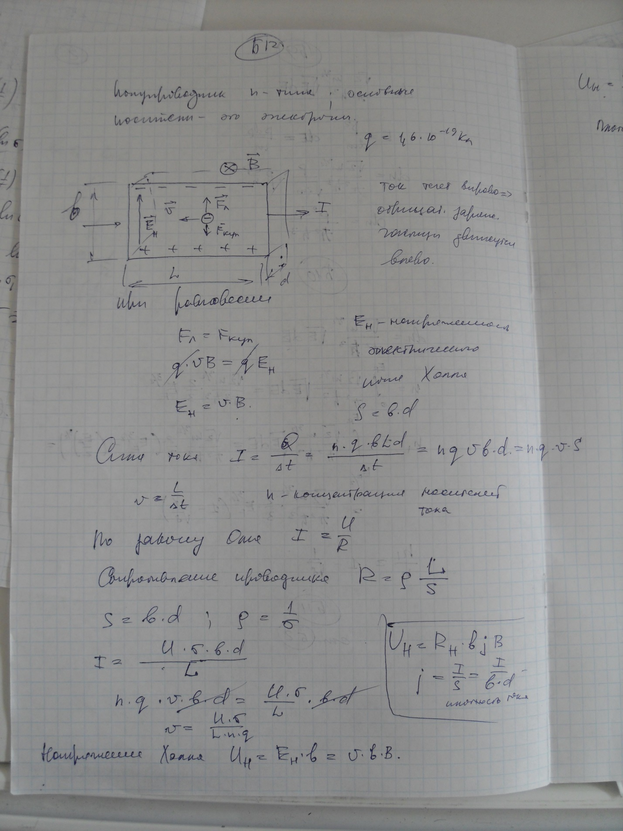 Б12
Полупроводник n-типа, основные
носители - это электроны.
q = 1,6·10⁻¹⁹ Кл
⊗ B⃗
ток течет вправо =>
отрицат. заряж.
частицы движутся
влево.
b
E⃗н
v⃗
F⃗л
Fкул
I
+ + + + +
L
d
при равновесии
Fл = Fкул
q·vB = qEн
Eн = v·B.
Eн - напряженность
электрического
поля Холла
S = b·d
Сила тока I = Q/Δt = n·q·bLd/Δt = nqvb·d. = n·q·v·S
v = L/Δt
n - концентрация носителей
тока
По закону Ома I = U/R
Сопротивление проводника R = ρ L/S
S = b·d ; ρ = 1/σ
I = U·σ·b·d/L
n·q·v·b·d = U·σ/L · b·d
v = U·σ/L·n·q
Uн = Rн·b j B
j = I/S = I/b·d -
плотность тока
Напряжение Холла Uн = Eн·b = v·b·B.
Uн =